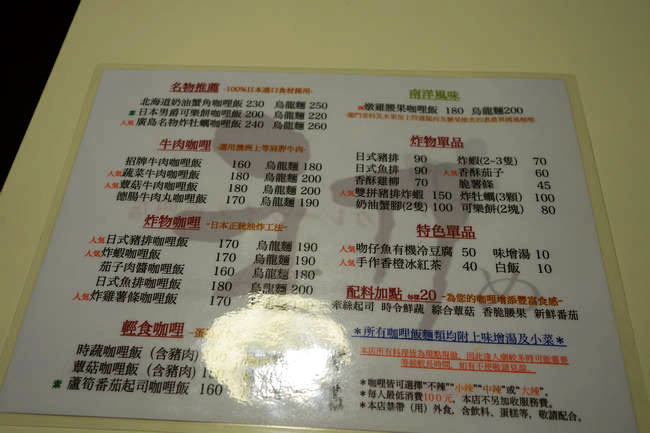 名物推薦 -100%日本進口食材採用-
北海道奶油蟹角咖哩飯 230 烏龍麵 250
素 日本男爵可樂餅咖哩飯 200 烏龍麵 220
人氣 廣島名物炸牡蠣咖哩飯 240 烏龍麵 260
牛肉咖哩 -選用澳洲上等肩胛牛肉-
招牌牛肉咖哩飯 160 烏龍麵 180
人氣 蔬菜牛肉咖哩飯 180 烏龍麵 200
人氣 蘑菇牛肉咖哩飯 180 烏龍麵 200
德腸牛肉丸咖哩飯 170 烏龍麵 190
炸物咖哩 -日本正統油炸工法-
人氣 日式豬排咖哩飯 170 烏龍麵 190
人氣 炸蝦咖哩飯 170 烏龍麵 190
茄子肉醬咖哩飯 160 烏龍麵 180
日式魚排咖哩飯 180 烏龍麵 200
人氣 炸雞薯條咖哩飯 170 烏龍麵 190
輕食咖哩
時蔬咖哩飯 (含豬肉)
蘑菇咖哩飯 (含豬肉) 150
素 蘆筍番茄起司咖哩飯 160
南洋風味
燉雞腰果咖哩飯 180 烏龍麵200
炸物單品
日式豬排 90 炸蝦(2~3隻) 70
日式魚排 90 人氣 香酥茄子 60
香酥雞柳 70 脆薯條 45
人氣 雙拼豬排炸蝦 150 炸牡蠣(3顆) 100
奶油蟹腳(2隻) 100 可樂餅(2塊) 80
特色單品
人氣 吻仔魚有機冷豆腐 50 味增湯 10
人氣 手作香橙冰紅茶 40 白飯 10
配料加點 每樣20 -為您的咖哩增添豐富食感-
牽絲起司 時令鮮蔬 綜合蘑菇 香脆腰果 新鮮番茄
*所有咖哩飯麵類均附上味增湯及小菜*
本店所有料理皆為現點現做，因此逢人潮較多時可能需要
等候較長時間，如有不便敬請見諒。
*咖哩皆可選擇"不辣""小辣""中辣"或"大辣"。
*每人最低消費100元，本店不另加收服務費。
*本店禁帶（用）外食，含飲料、蛋糕等，敬請配合。